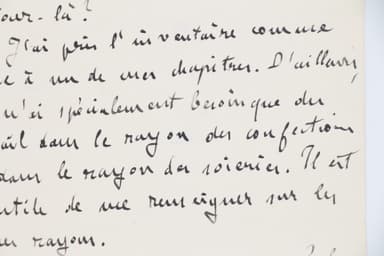 jour-là ?
J'ai pris l'inventaire comme
à un de mes chapitres. D'ailleurs,
n'ai spécialement besoin que du
dans le rayon des confections
dans le rayon des soieries. Il est
utile de me renseigner sur les
rayons.